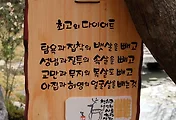 최고의 다이어트
탐욕과 집착의 뱃살을 빼고
성냄과 질투의 속살을 빼고
교만과 무지의 목살을 빼고
아집과 허영의 얼굴살을 빼는것